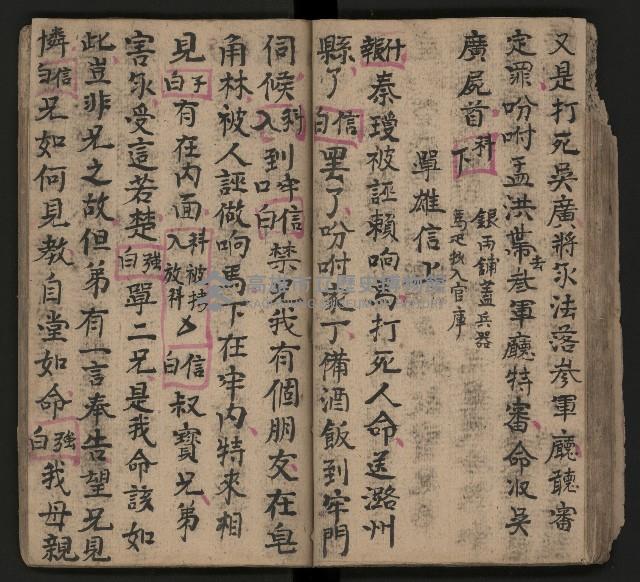 又是打死吳廣將永法落參軍廳聽審
定罪吩咐孟洪帶去參軍廳特審命收吳
廣屍首科下
銀両舖蓋兵器
馬疋批入官庫
單雄信上
什報秦瓊被誣賴响馬打死人命送潞州
縣了信白罢了吩咐家丁備酒飯到牢門
伺候科入到牢口信白禁我有個朋友在皂
角林被人誣做响馬下在牢內特來相
見子白有在內面科被擄入放科信白叔寶兄弟
害永受這若楚強白單二兄是我命該如
此豈非兄之故但弟有一言奉告望兄見
憐信白兄如何見教自堂如命強白我母親
高雄市立歷史博物館